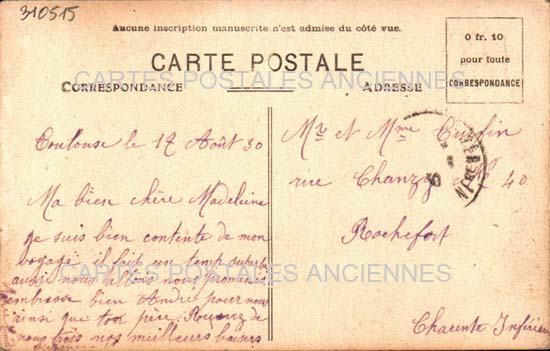 310515
Aucune inscription manuscrite n'est admise du côté vue.
CARTE POSTALE
0 fr. 10
pour toute
CORRESPONDANCE
CARTES POSTALES ANCIENNES
CORRESPONDANCE
ADRESSE
Toulouse le 17 Août 30
Ma bien chère Madeleine
je suis bien contente de mon
voyage il fait un temps superbe
aussi nous allons nous promener
embrasse bien André pour nous
ainsi que ton père. Reçevez de
nous trois nos meilleurs baisers
CARTES POSTALES ANCIENNES
Mr et Mme
rue Chanzy No 40
Rochefort
Charente Inférieure